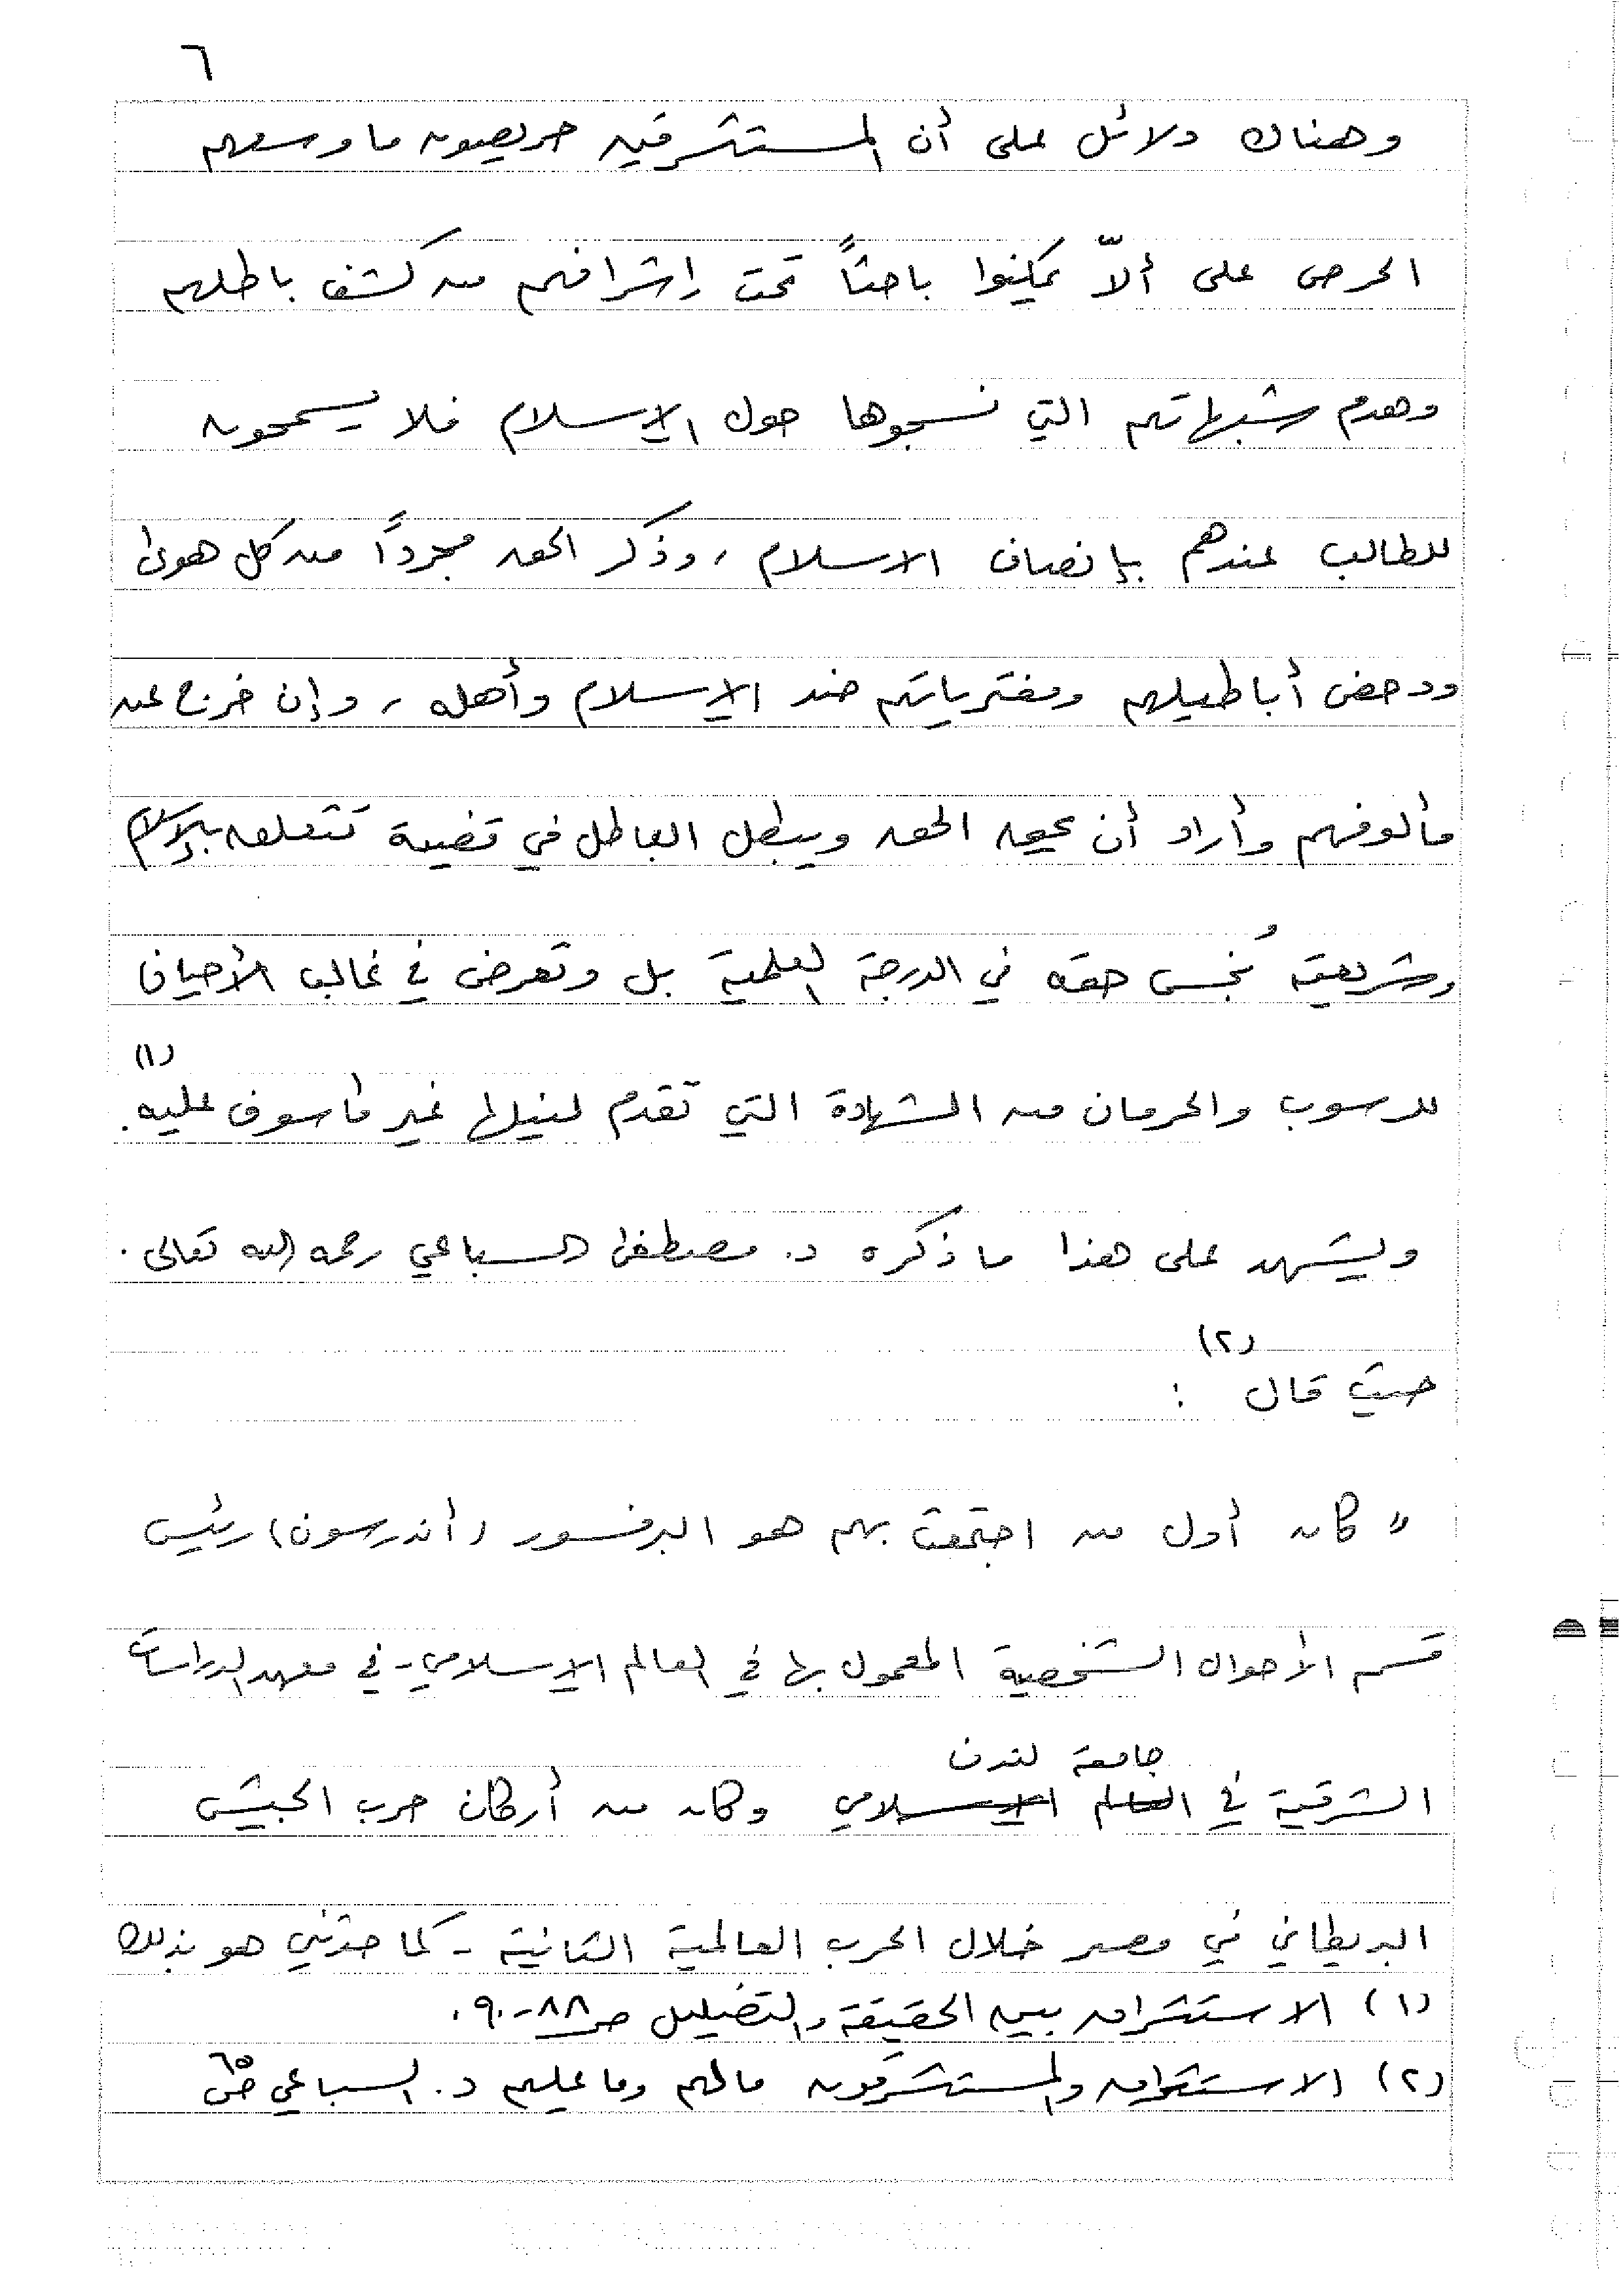 ٦
وهناك دلائل على أن المستشرقين حريصون ما وسعهم
الحرص على ألاّ يمكنوا باحثاً تحت إشرافهم من كشف باطلهم
وهدم شبهاتهم التي نسجوها حول الإسلام فلا يسمحون
للطالب عندهم بإنصاف الاسلام ، وذكر الحق مجرداً من كل هوى
ودحض أباطيلهم ومفترياتهم ضد الإسلام وأهله ، وإن خرج عن
مألوفهم وأراد أن يحق الحق ويبطل الباطل في قضية تتعلق بالإسلام
وشريعته بُخس حقه في الدرجة العلمية بل وتعرض في غالب الأحيان
للرسوب والحرمان من الشهادة التي تقدم لنيلها غير مأسوف عليه (١).
ويشهد على هذا ما ذكره د. مصطفى السباعي رحمه الله تعالى .
حيث قال (٢) :
" كان أول من اجتمعت بهم هو البرفسور (أندرسون) رئيس
قسم الأحوال الشخصية المعمول بها في العالم الإسلامي - في معهد الدراسات
جامعة لندن
الشرقية في العالم الإسلامي وكان من أركان حرب الجيش
البريطاني في مصر خلال الحرب العالمية الثانية - كما حدثني هو بذلك
(١) الاستشراق بين الحقيقة والتضليل ص ٨٨ - ٩٠ .
(٢) الاستشراق والمستشرقون مالهم وما عليهم د. السباعي ص ٦٥